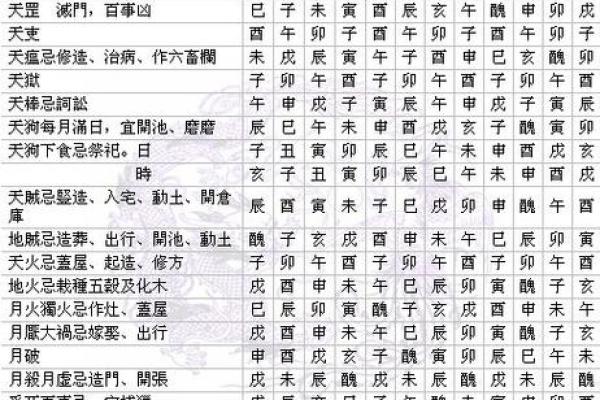 天罡　滅門，百事凶 巳 子 未 寅 酉 辰 亥 午 醜 申 卯 戌
天吏
天瘟忌修造、治病、作六畜欄 未 戌 辰 寅 午 子 酉 申 巳 亥 醜 卯
天獄 子 卯 午 酉 子 卯 午 酉 子 卯 午 酉
天棒忌詞訟 午 申 戌 子 寅 辰 午 申 戌 子 寅 辰
天狗每月滿日，宜開池、磨磨 辰 巳 午 未 申 酉 戌 亥 子 醜 寅 卯
天狗下食忌祭祀。日 子 丑 寅 卯 辰 巳 午 未 申 酉 戌 亥
時 亥 子 丑 寅 卯 辰 巳 午 未 申 酉 戌
天賊忌豎造、入宅、動土、開倉
庫 辰 酉 寅 未 子 巳 戌 卯 申 醜 午 亥
地賊忌造葬、出行、開池、動土 醜 子 亥 戌 酉 申 未 午 巳 辰 卯 寅
天火忌蓋屋、起造、修方 子 卯 午 酉 子 卯 午 酉 子 卯 午 酉
地火忌栽種五穀及化木 戌 酉 申 未 午 巳 辰 卯 寅 醜 子 亥
月火獨火忌作灶、蓋屋 巳 辰 卯 寅 醜 子 亥 戌 酉 申 未 午
月厭大禍忌嫁娶、出行 戌 酉 申 未 午 巳 辰 卯 寅 醜 子 亥
月破 申 酉 戌 亥 子 醜 寅 卯 辰 巳 午 未
月殺月虛忌造門、開張 醜 戌 未 辰 醜 戌 未 辰 醜 戌 未 辰